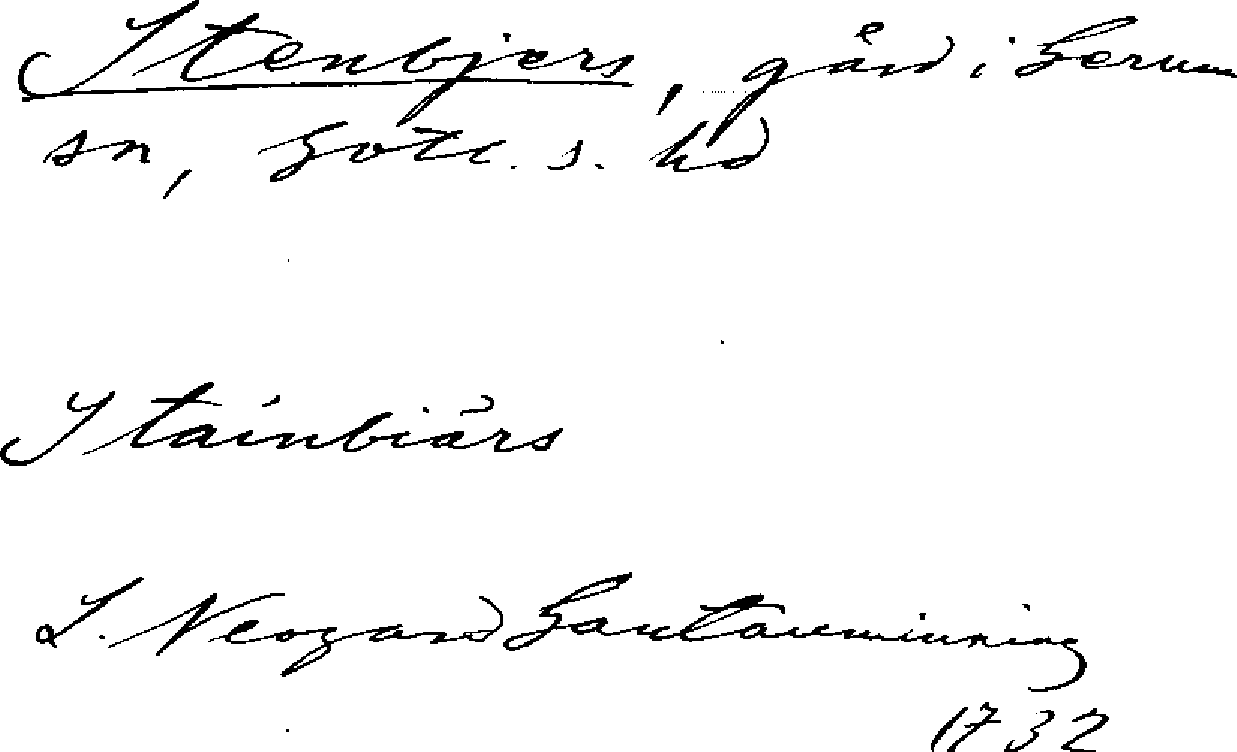 Stenbjers, gård i Gerum
sn, Gotl. s. hd
Stainbiärs
L. Neogard Gautauminning
1732